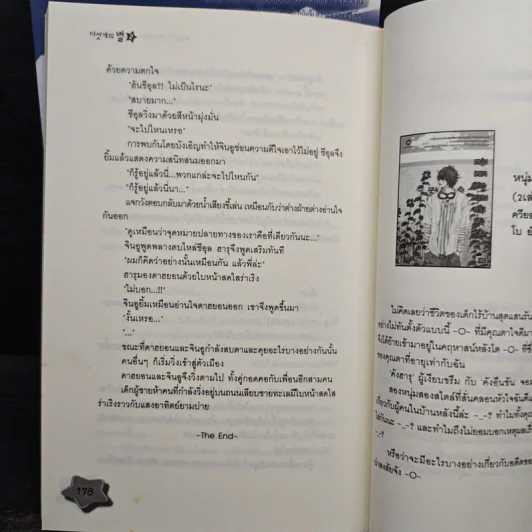 다섯개의 별 2
ด้วยความตกใจ
"ฮันซีอุล?! ไม่เป็นไรนะ"
"สบายมาก..."
ซีอุลวิ่งมาด้วยสีหน้ามุ่งมั่น
"จะไปไหนเหรอ"
การพบกันโดยบังเอิญทำให้จินอูซ่อนความดีใจเอาไว้ไม่อยู่ ซีอุลจึง
ยิ้มแล้วแสดงความสนิทสนมออกมา
"ก็รู้อยู่แล้วนี่...พวกแกล่ะจะไปไหนกัน"
"ก็รู้อยู่แล้วนี่นา..."
แจกวังตอบกลับมาด้วยน้ำเสียงขี้เล่น เหมือนกับว่าต่างฝ่ายต่างอ่านใจ
กันออก
"ดูเหมือนว่าจุดหมายปลายทางของเราคือที่เดียวกันนะ..."
จินอูพูดพลางตบไหล่ซีอุล ฮารุจึงพูดเสริมทันที
"ผมก็คิดว่าอย่างนั้นเหมือนกัน แล้วพี่ล่ะ"
ฮารุมองดาฮยอนด้วยใบหน้าสดใสร่าเริง
"ไม่บอก...!!"
จินอูยิ้มเหมือนอ่านใจดาฮยอนออก เขาจึงพูดขึ้นมา
"งั้นเหรอ..."
"..."
ขณะที่ดาฮยอนและจินอูกำลังสบตาและคุยอะไรบางอย่างกันนั้น
คนอื่นๆ ก็เริ่มวิ่งเข้าสู่ตัวเมือง
ดาฮยอนและจินอูจึงวิ่งตามไป ทั้งคู่กอดคอกับเพื่อนอีกสามคน
เด็กผู้ชายห้าคนที่กำลังวิ่งอยู่บนถนนเลียบชายทะเลมีใบหน้าสดใส
ร่าเริงราวกับแสงอาทิตย์ยามบ่าย
-The End-
178
หนุ่ม
(2เล่
ควียอ
ใบ ยั
ไม่คิดเลยว่าชีวิตของเด็กไร้บ้านสุดแสนรัน
อย่างไม่ทันตั้งตัวแบบนี้ -O- ที่มีคุณตาใจดีมา
รับให้ย้ายเข้ามาอยู่ในคฤหาสน์หลังโต -O- ที่ซึ่
ของคุณตาที่อายุเท่ากับฉัน
"คังฮารุ" ผู้เงียบขรึม กับ "คังอึนชัน" จอม
สองหนุ่มสองสไตล์ที่สั่นคลอนหัวใจฉันดีแ
เกี่ยวกับผู้คนในบ้านหลังนี้ล่ะ -_-? ทำไมทั้งคุณ
ใส่กันนะ -_-? และทำไมถึงไม่ยอมบอกเหตุผลเรื่
หรือว่าจะมีอะไรบางอย่างเกี่ยวกับอดีตของ
น่าสงสัยจัง -O-